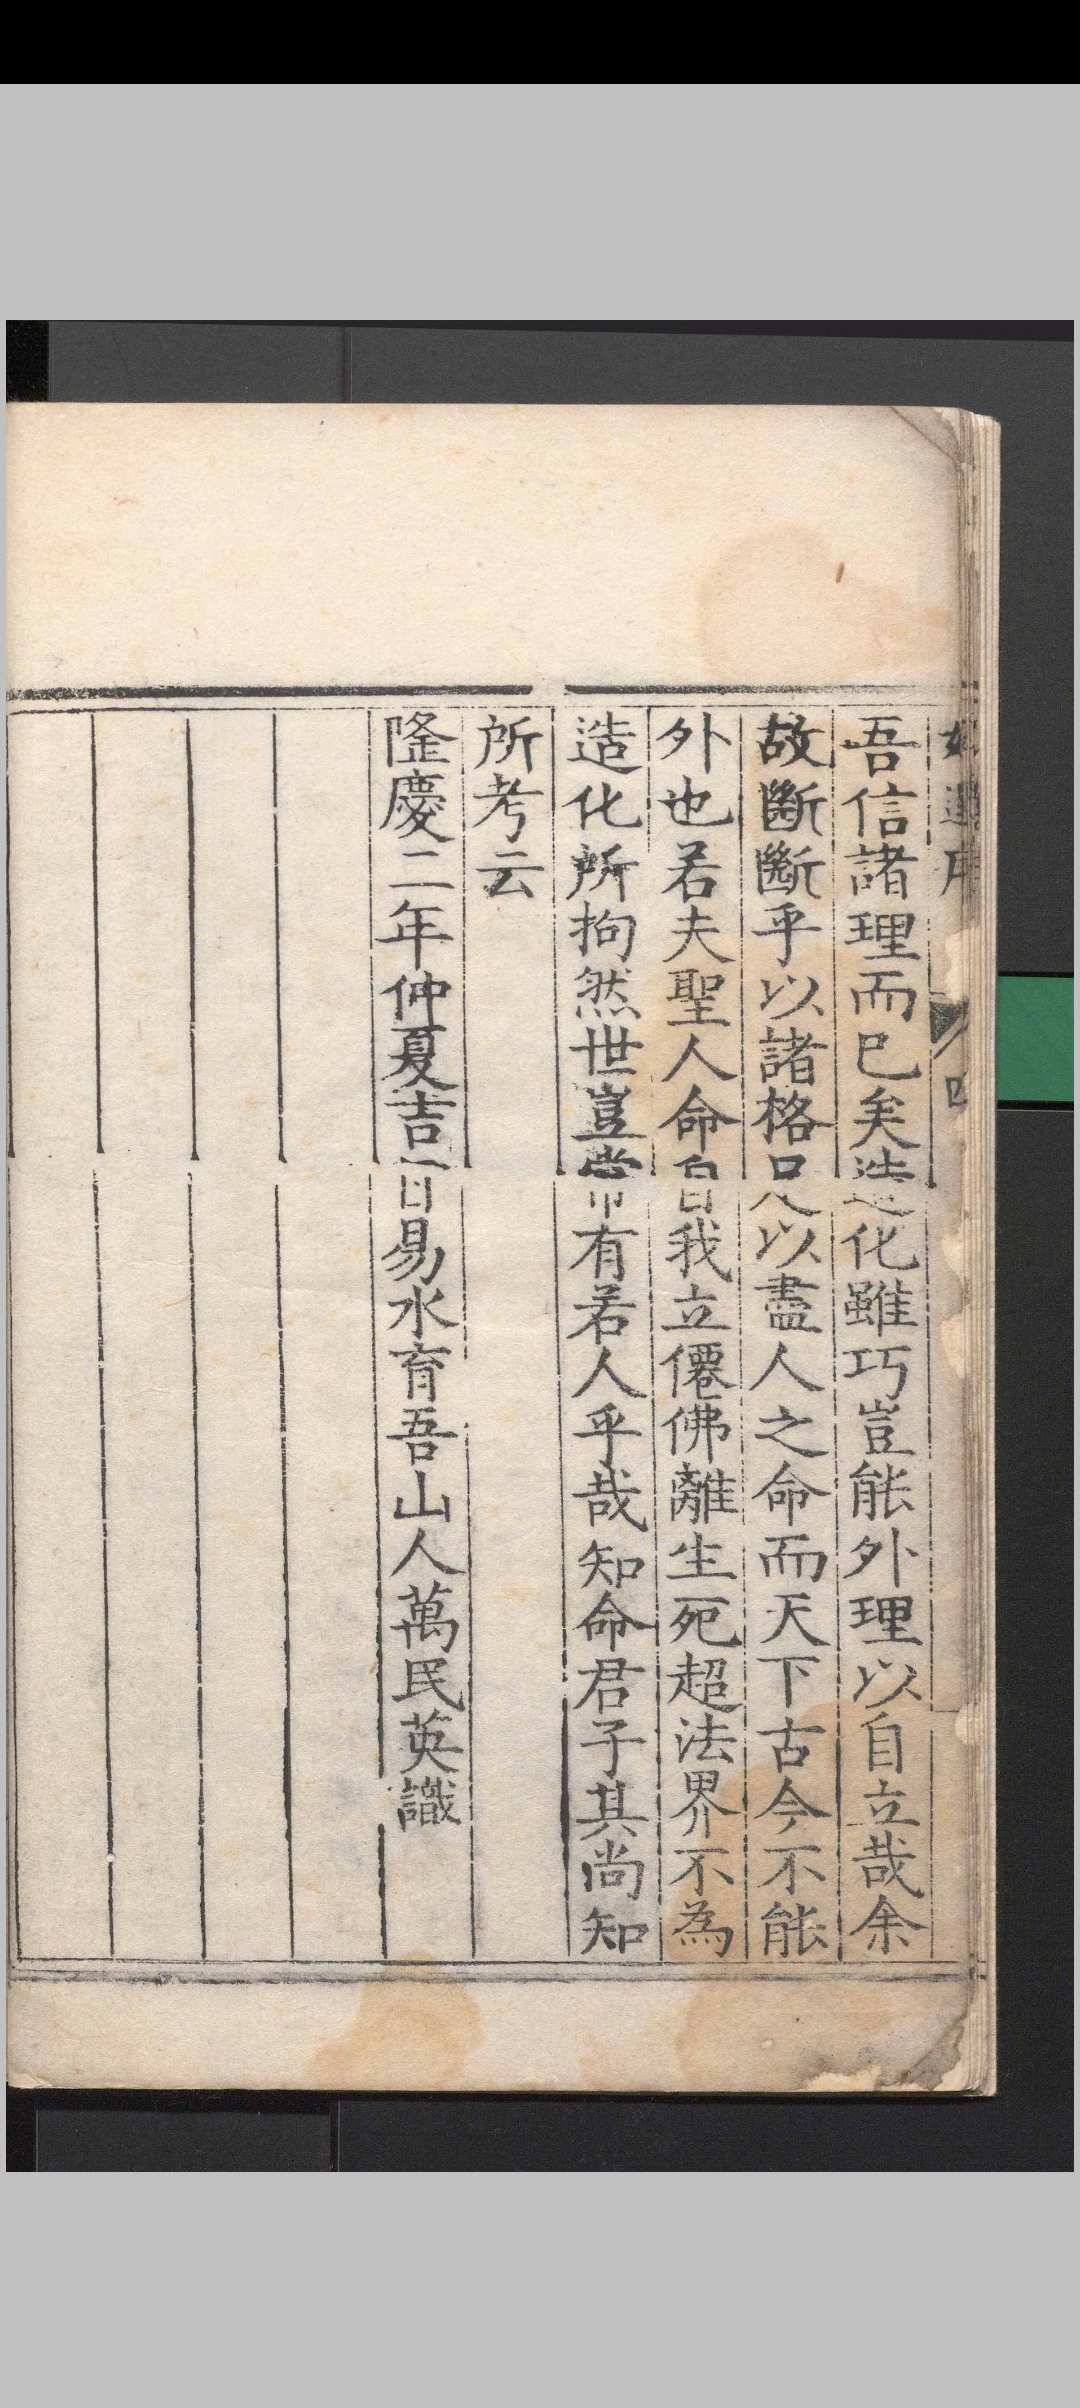 吾信諸理而巳矣造化雖巧豈能外理以自立哉余
故斷斷乎以諸格只以盡人之命而天下古今不能
外也若夫聖人命自我立僊佛離生死超法界不為
造化所拘然世豈常有若人乎哉知命君子其尚知
所考云
隆慶二年仲夏吉日易水育吾山人萬民英識